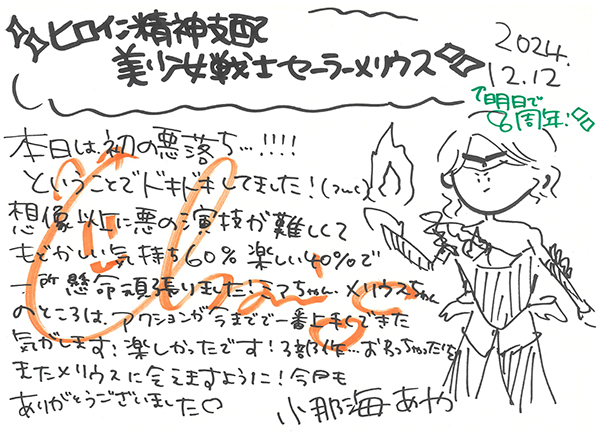 ヒロイン精神支配
美少女戦士セーラーメリウス
2024.
12.12
↑明日で
8周年!
本日は初の悪落ち…!!!!
ということでドキドキしてました!
想像以上に悪の演技が難しくて
もどかしい気持ち60%楽しい40%で
一所懸命頑張りました!ミアちゃん・メリウスちゃん
のところは、アクションが今までで一番上手くできた
気がします!楽しかったです!3部作…おわっちゃったけど
またメリウスに会えますように!今日も
ありがとうございました♡
小那海あや